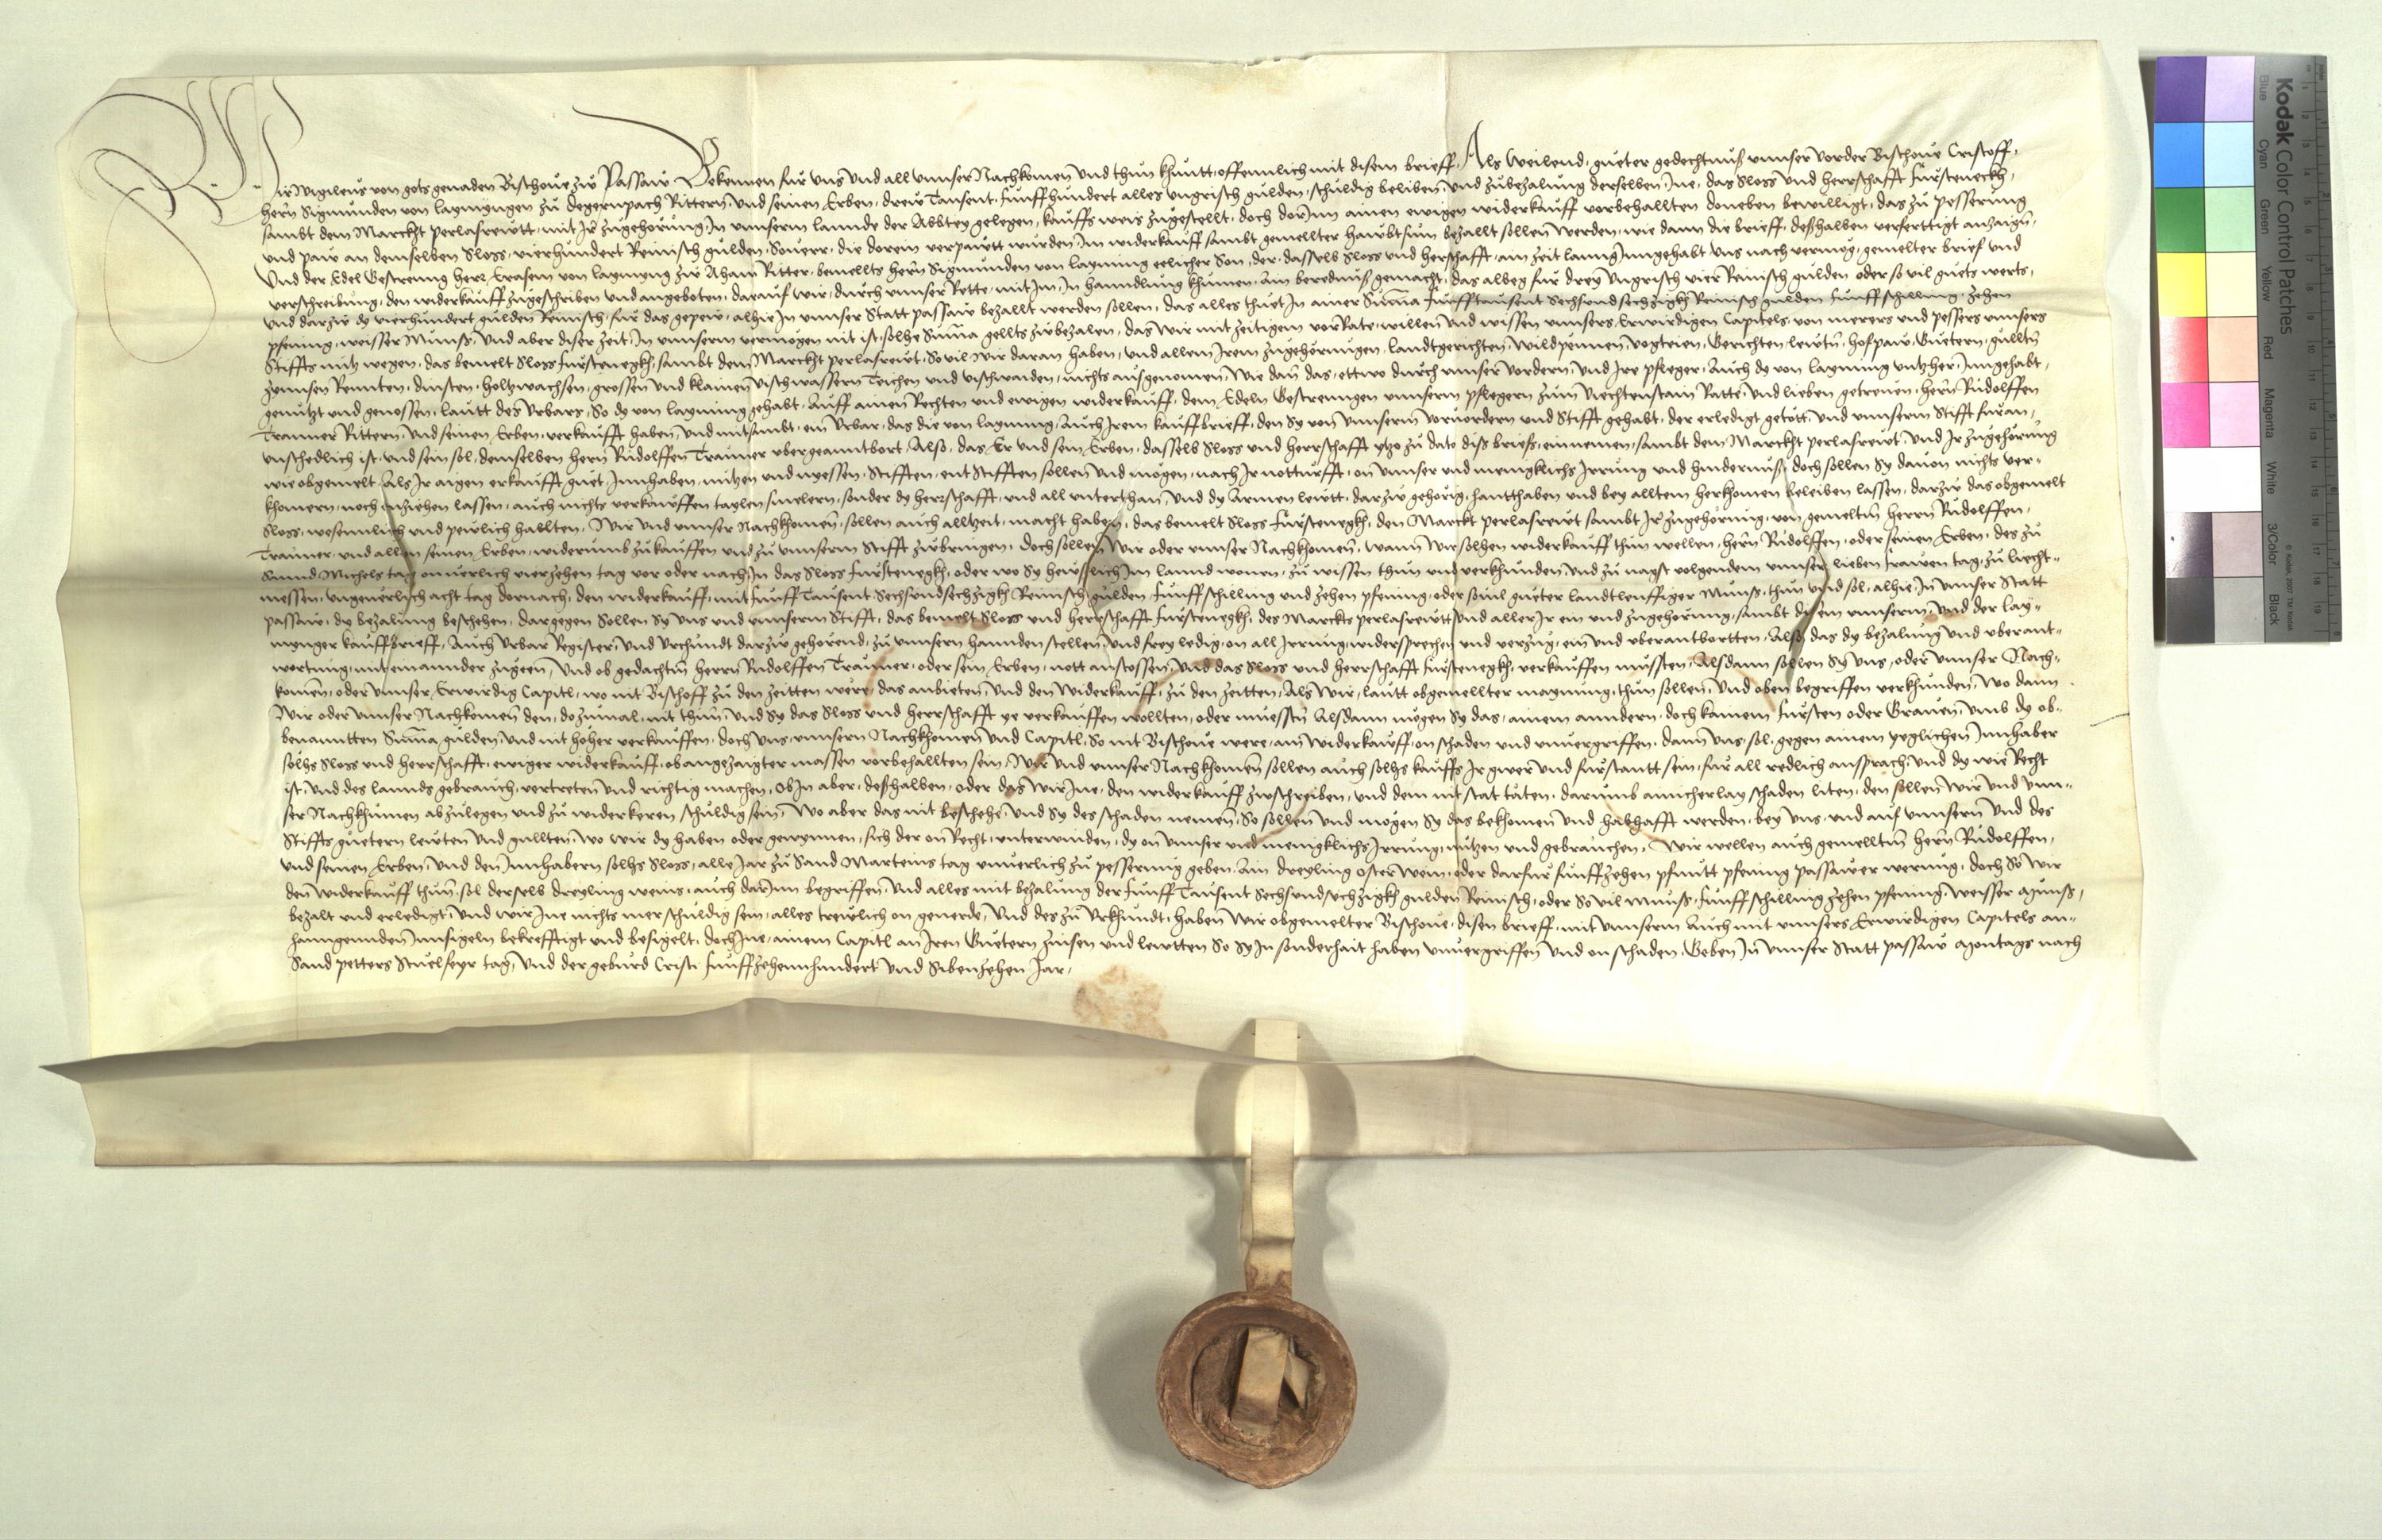 Wir Vigileus von gots genaden Bischoue zw Passaw Bekennen fur uns und all unnser Nachkomen und thun khuntt offennlich mit disem brieff. Als Weilend gueter gedechtnuß unnser vorder Bischoue Cristoff,
hern Sigmunden von Laymyngen zu Degernpach Rittern und seinen Erben, drew Tausent, funffhundert alles ungrisch gulden, schuldig beliben und zubezalung derselben, Ine, das Sloss und herrschafft furstenneckh,
sambt dem Marckht perlasrewtt, mit Ir zugehorung, In unnserm lannde der Abbtey gelegen, kauffs weis zugestellt, doch dorInn ainen ewigen widerkauff vorbehallten doneben bewilligt, das zu pesserung
und paw an demselben Sloss, vierhundert Reinisch gulden, Souerr, die dorein verpawtt wurden, Im widerkauff sambt gemellter hawbtsum bezallt sollen werden, wie dann die brieff, deshalben verferttigt anzaign,
Und der Edel Gestreng herr Erasem von laymyng zw Aham Ritter, bemellts hern Sigmunden von laymyng eelicher Son, der, dasselb Sloss und herschafft, ain zeit lanng Inngehabt uns nach vermog, gemelter brief und
verschreibung, den widerkauff zugeschriben und angeboten, darauf wir, durch unnser Rette, mit Im, In hanndlung khumen, Ain berednuß gemacht, das albeg fur drey ungrisch vier Reinisch gulden oder so vil guets werts,
und darzw dy vierhundert gulden Reinisch, fur das gepew, alhie In unnser Statt passaw bezallt werden sollen, das alles thuet In ainer Suma funfftausent Sechsundsechzigk Reinisch gulden funff schilling zehen
pfening, weisser Munss, Und aber diser zeit, In unnserm vermogen nit ist, solhe Suma gellts zubezalen, das wir mit zeitigem vorRate, willen und wissen unnsers Erwirdigen Capitels, von merers und pessers unnsers
Stiffts nutz wegen, das bemelt Sloss furstenegkh, sambt dem Marckht perlasrewt, Souil wir daran haben, und allem Irem zugehorungen, landtgerichten, wildpennen, vogteien, Gerichten, lewtn, hofpaw, Guetern, gulltn
zynnsen Rennten, dinsten, holtzwachsen, grossen und klainen vischwassern Teichen und vischwaiden, nichts ausgenomen, wie dan das, ettwo durch unnser vordern, und Ire pfleger, Auch dy von laymyng untzher, Inngehabt,
genutzt und genossen, lautt des Urbars, So dy von laymyng gehabt, Auff ainen Rechten und ewigen widerkauff, dem Edeln Gestrenngen unnserm pflegern zum Viechtenstain Ratte, und lieben getrewen, hern Rudolffen
Trauner Rittern, und seinen Erben, verkaufft haben, und mitsambt, ein Urbar, das die von laymyng, Auch Irem kauffbrieff, den Sy von unnserm vorvordern und Stifft gehabt, der erledigt getött, und unnserm Stifft furan,
unschedlich ist, und sein sol, demselben hern Rudolffen Trauner ubergeanntbort, Also, das Er und sein Erben, dasselb Sloss und herrschafft ytzo zu dato diss briefs, einnemen, sambt dem Marckht perlasrewt, und Ir zugehorung
wie obgemelt, Als Ir aigen erkaufft guet Innhaben, nutzen und nyessen, Stifften, entStifften sollen und mogen, nach Ir notturfft, on unnser und menigklichs Irrung und hindernuß, doch sollen Sy dauon nichts ver-
khomern, noch enziehen lassen, auch nichts verkauffen taylen smelern, sonder dy herrschafft, und all unterthan, und dy Armen lewtt, darzw gehorig, hantthaben und bey alltem herkhomen beleiben lassen, darzw das obgemelt
Sloss, wesennlich und pewlich hallten, Wir und unnser Nachkhomen, sollen auch alltzeit, macht haben, das bemelt Sloss furstenegkh, den Marckt perlasrewt sambt Ir zugehorung, von gemeltm herrn Rudolffen,
Trauner, und allen seinen Erben, widerumb zukauffen und zu unnserm Stifft zubringen, doch sollen Wir oder unnser Nachkhomen, wann wir solhen widerkauff thun wellen, hern Rudolffen, oder seinen Erben, des zu
Sannd Michels tag onuerlich vierzehen tag vor oder nach, In das Sloss furstenegkh, oder wo Sy hewslich Im lannd wonen, zu wissen thun und verkhunden, und zu nagst volgendem unnser lieben frawen tag, zu liecht-
messen, ungeuerlich acht tag dornach, den widerkauff, mit funff Tausent Sechsundsechzigkh Reinisch gulden, funff schilling und zehen pfening, oder souil gueter landtleuffiger Munss, thun und sol, alhie, In unnser Statt
passaw, dy bezalung beschehen, dargegen Sollen Sy uns und unnserm Stifft, das bemelt Sloss und herrschafft furstenegkh, des Marckts perlasrewtt, und aller Ir ein und zugehorung, sambt disem unnserm, und der lay-
mynger kauffbrieff, Auch Urbar Register, und Urchundt darzw gehorend, zu unnsern hannden stellen, und frey ledig, on all Irrung, widersprechen und verzug, ein und uberanntbortten, Also, das dy bezalung und uberant-
wortung, mit einannder zugeen, Und ob gedachtm herrn Rudolffen Trauner, oder sein Erben, nott anstossen, und das Sloss und herrschafft furstenegkh, verkauffen muessten, Alsdann sollen Sy uns, oder unnser Nach-
komen, oder unnser Erwirdig Capitl, wo nit Bischoff zu den zeitten were, das anbieten, und den widerkauff, zu den zeitten, Als wir, lautt obgemellter maynung, thun sollen, und oben begriffen verkhunden, wo dann
Wir oder unnser Nachkomen den, dozumal, nit thun, und Sy das Sloss und herrschafft ye verkauffen wollten, oder muesstn Alsdann mogen Sy das, ainem anndern, doch kainem fursten oder Grauen, umb dy ob-
benanntten Suma gulden, und nit hoher verkauffen, doch uns, unnsern Nachkhomen und Capitl, So nit Bischoue were, am widerkauff, on schaden und unuergriffen, dann uns, sol, gegen ainem yeglichen Innhaber
solhs Sloss und herrschafft, ewiger widerkauff, obangezaigter massen vorbehallten sein, Wir und unnser Nachkhomen sollen auch solhs kauffs Ir gwer und furstantt sein, fur all redlich ansprach, und dy wie Recht
ist, und des lannds gebrauch, vertreten und richtig machen, Ob In aber, deshalben, oder das wir Ine, den widerkauff zuschreiben, und dem nit stat taten, darumb ainicherlay schaden liten, den sollen wir und unn-
ser Nachkhumen abzulegen und zu widerkeren schuldig sein, Wo aber das nit beschehe, und Sy des schaden nemen, So sollen und mogen Sy das bekhomen und habhafft werden, bey uns, und auf unnsern und des
Stiffts guetern lewten und gullten, wo wir dy haben oder gewynnen, sich der on Recht, unterwinden, dy on unnser und menigklichs Irrung, nutzen und gebrauchen, Wir wellen auch gemelltm hern Rudolffen,
und seinen Erben, und den Innhabern solhs Sloss, alle Jar zu Sand Marteins tag unuerlich zu pesserung geben, Ain dreyling oster wein, oder darfur funffzehen pfuntt pfening passawer werung, doch So wir
den widerkauff thun, sol derselb dreyling weins, auch darInn begriffen, und alles mit bezalung der funff Tausent Sechsundsechzigkh gulden Reinisch, oder So vil Munss, funff schilling zehen pfening, weisser Munss,
bezalt und erledigt, und wir Ine nichts mer schuldig sein, alles trewlich on geuerde, Und des zu Urkhundt, haben wir obgemelter Bischoue, disen brieff, mit unnserm Auch mit unnsers Erwirdigen Capitels an-
hanngenden Innsigeln bekrefftigt und besigelt, doch Ine, ainem Capitl an Iren Guetern zinsen und lewtten So Sy In sonderhait haben unuergriffen und on schaden, Geben In unnser Statt passaw Montags nach
Sand petters Stuelfeyr tag, Und der geburd Cristi funffzehennhundert und Sibenzehen Jar,
Kodak Color Control Patches
Blue Cyan Green Yellow Red Magenta White 3/Color Black
© Kodak, 2007 TM: Kodak